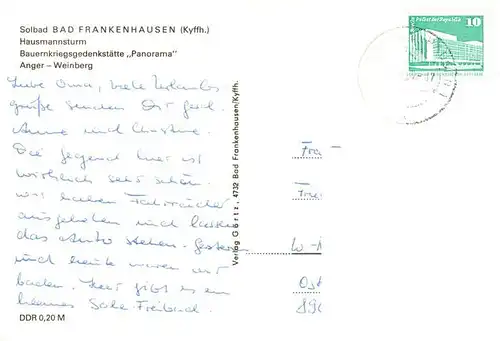 Solbad BAD FRANKENHAUSEN (Kyffh.)
Hausmannsturm
Bauernkriegsgedenkstätte „Panorama"
Anger – Weinberg
Liebe Oma, viele Urlaubs
grüße senden Dir
Anne und Christine.
Die Gegend hier ist
wirklich sehr schön.
wir haben Fahrräder
ausgeliehen und lassen
das Auto stehen. Gestern
und heute waren wir
baden. Hier gibt es ein
kleines Sole-Freibad.
DDR 0,20 M
Verlag Görtz, 4732 Bad Frankenhausen/Kyffh.
Palast der Republik
10
Frau